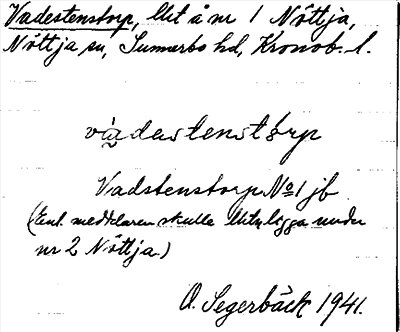 Vadestenstorp, lht å nr 1 Nöttja,
Nöttja sn, Sunnerbo hd, Kronob. l.
vàdestenstórp
Vadstenstorp No 1 jb
(Enl. meddelaren skulle lht ligga under
nr 2 Nöttja.)
O. Segerbäck 1941.